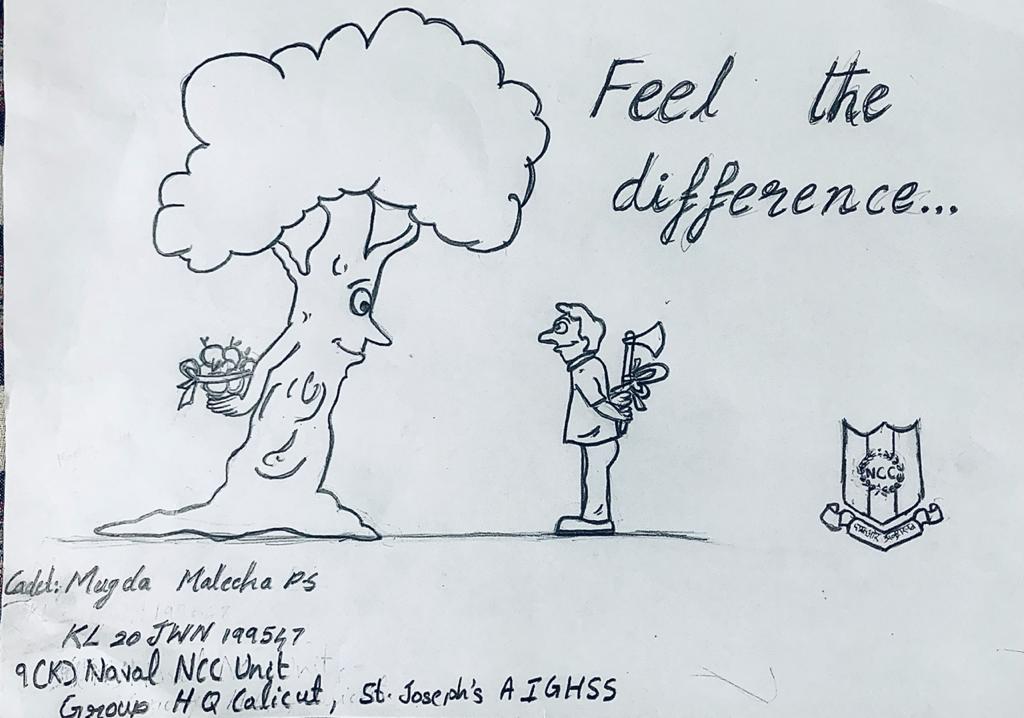 Feel the
difference...
NCC
एकता और अनुशासन
Cadet: Mugda Malecha PS
KL 20 JWN 199547
9(K) Naval NCC Unit
Group H Q Calicut, St. Joseph's A I GHSS